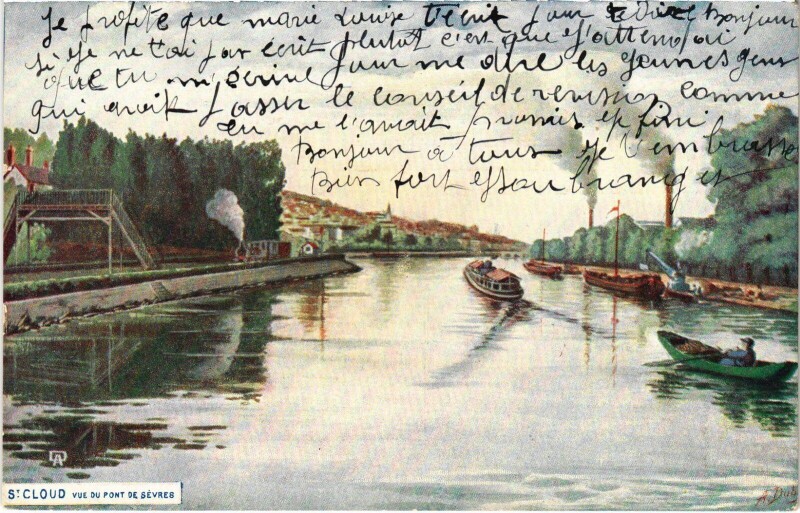 Je profite que marie Louise t'ecrit pour te dire Bonjour
si je ne t'ai pas ecrit plutot c'est que j'attendai
que tu m'ecrive pour me dire les jeunes gens
qui avait passer le conseil de revision comme
tu me l'avait promis
Bonjour à tous je t'embrasse
Bien fort
ST CLOUD VUE DU PONT DE SÈVRES
DA